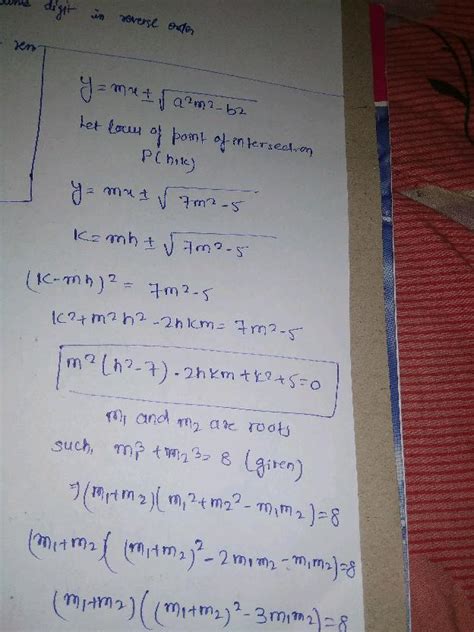 digit in reverse order
y = mx ± √(a²m² - b²)
Let locus of point of intersection
P(h,k)
y = mx ± √(7m² - 5)
k = mh ± √(7m² - 5)
(k - mh)² = 7m² - 5
k² + m²h² - 2hkm = 7m² - 5
m²(h² - 7) - 2hkm + k² + 5 = 0
m₁ and m₂ are roots
such, m₁³ + m₂³ = 8 (given)
⇒ (m₁ + m₂)(m₁² + m₂² - m₁m₂) = 8
(m₁ + m₂)((m₁ + m₂)² - 2m₁m₂ - m₁m₂) = 8
(m₁ + m₂)((m₁ + m₂)² - 3m₁m₂) = 8